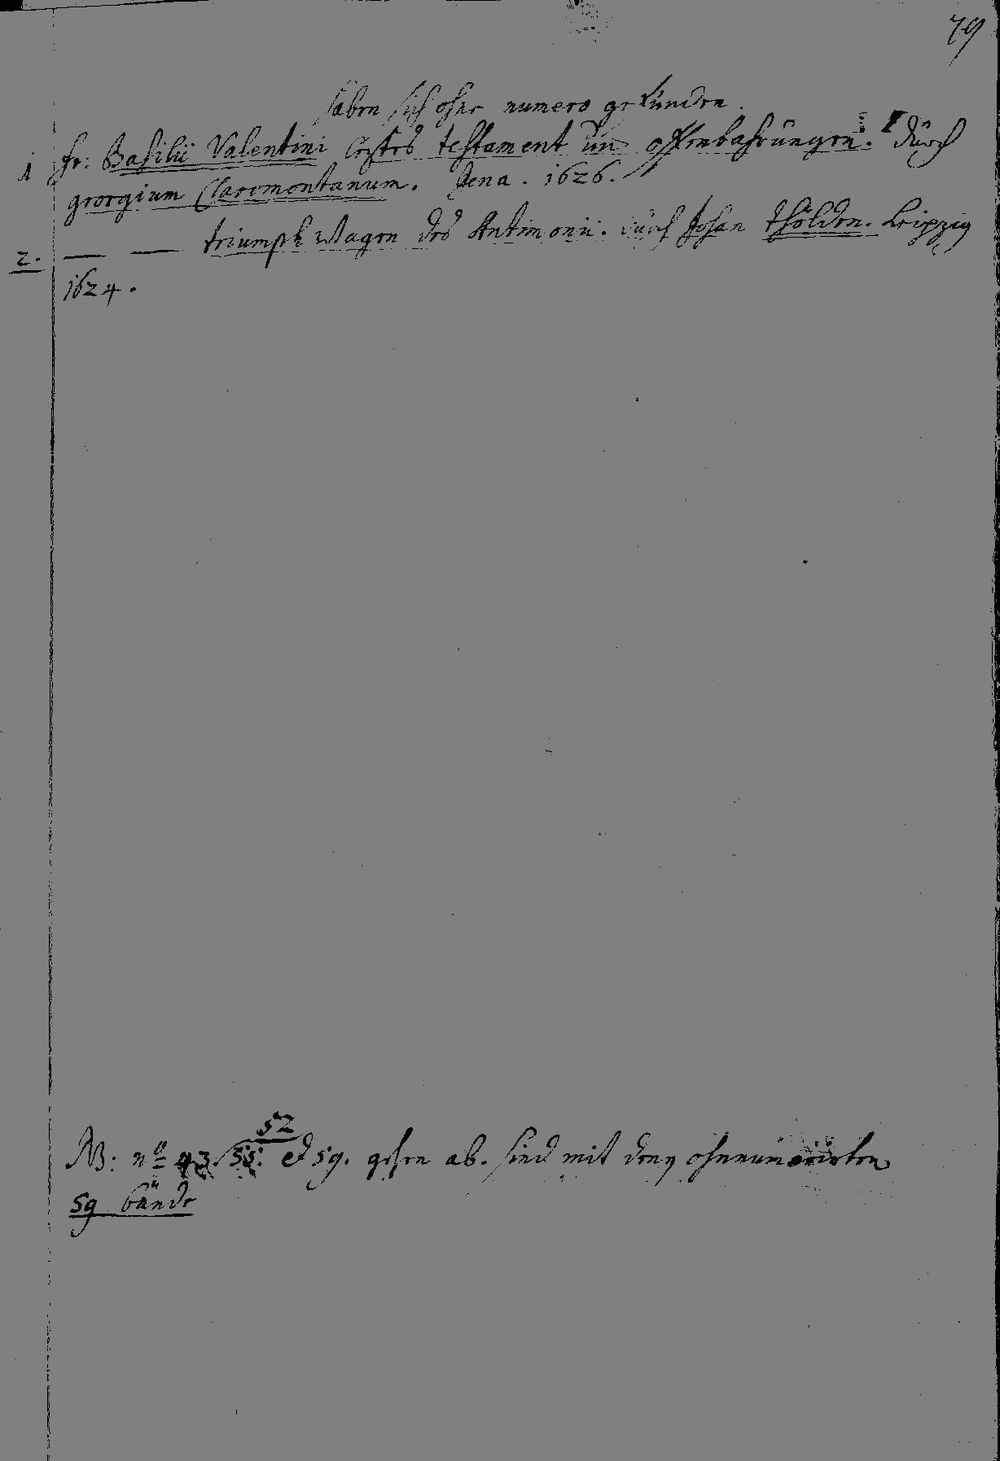 79
haben sich ohne numero gefunden.
1 Fr: Basilii Valentini Letztes testament und offenbahrungen. durch
georgium Claromontanum. Jena. 1626.
2. — — triumph Wagen des Antimonii. durch Johan thölden. Leipzig
1624.
52
NB: no 43. 55. et 59. gehen ab. sind mit denen ohnnumerirten
59 bände